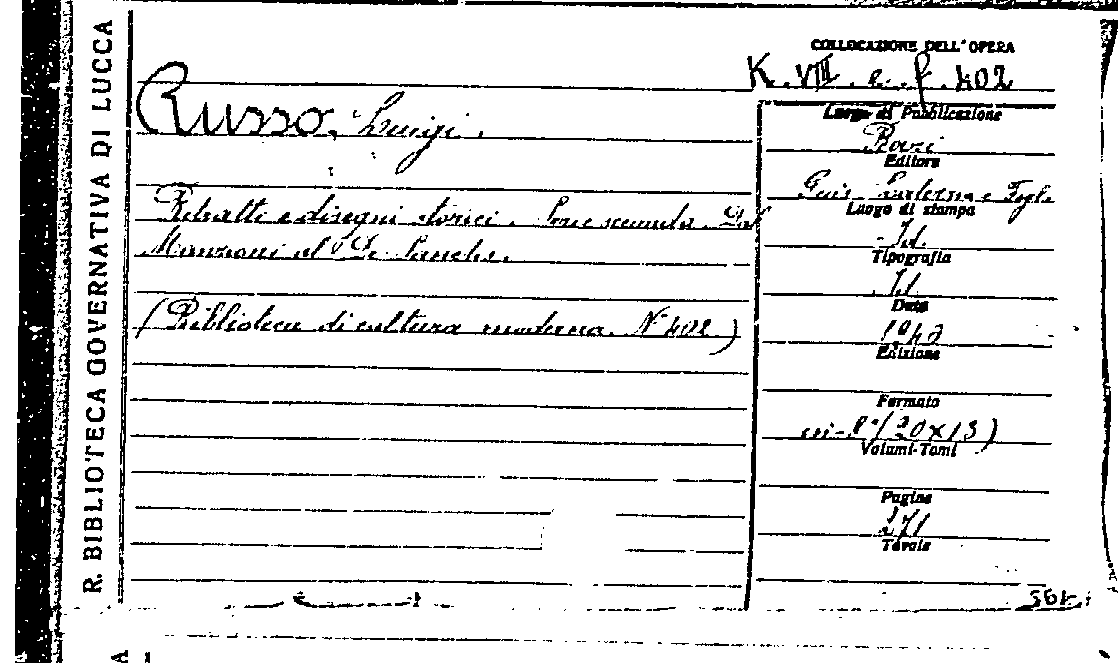 R. BIBLIOTECA GOVERNATIVA DI LUCCA
COLLOCAZIONE DELL'OPERA
K. VIII. f. 402
Russo, Luigi.
Ritratti e disegni storici. Serie seconda. Dal
Manzoni al De Sanctis.
(Biblioteca di cultura moderna. N. 402)
Luogo di Pubblicazione
Bari
Editore
Gius. Laterza e Figli
Luogo di stampa
Id.
Tipografia
Id
Data
Edizione
Formato
in-8° (20x13)
Volumi-Tomi
Pagine
271
Tavole